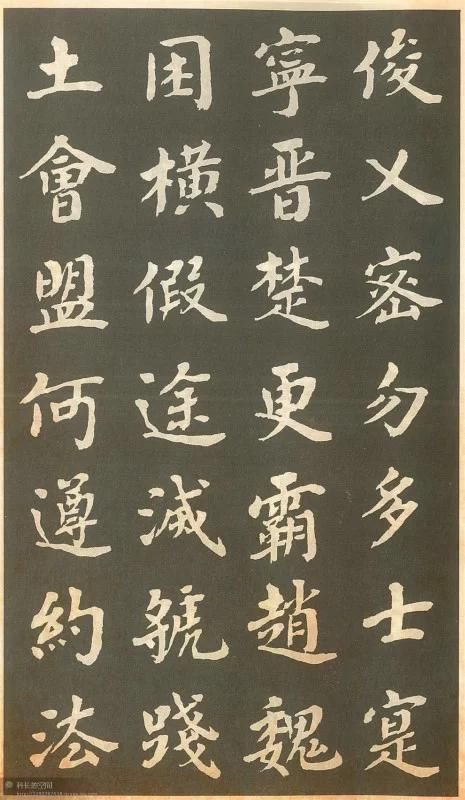 俊乂密勿多士寔
寧晋楚更霸趙魏
困橫假途滅虢踐
土會盟何遵約法
科长的空间